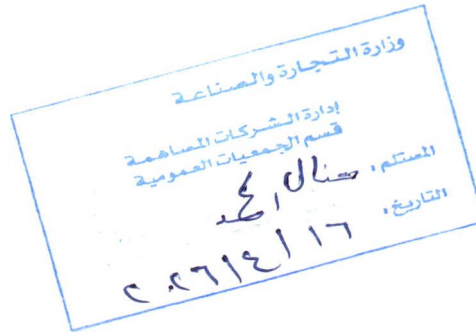 وزارة التجارة والصناعة
إدارة الشركات المساهمة
قسم الجمعيات العمومية
المستلم: منال أحمد
التاريخ: ١٦ / ٤ / ٢٠٢٦